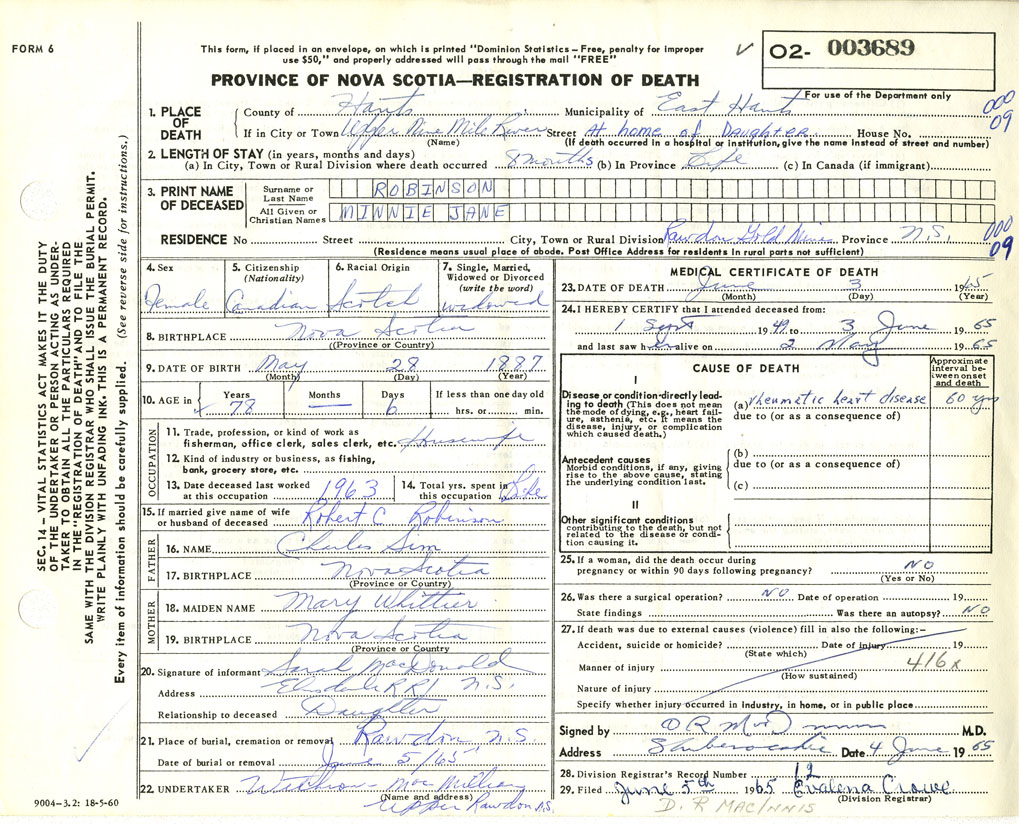 FORM 6
This form, if placed in an envelope, on which is printed "Dominion Statistics – Free, penalty for improper
use $50," and properly addressed will pass through the mail "FREE"
✓ O2- 003689
PROVINCE OF NOVA SCOTIA—REGISTRATION OF DEATH
For use of the Department only
1. PLACE OF DEATH County of Hants Municipality of East Hants 000
If in City or Town Upper Nine Mile River Street At home of Daughter House No. 09
(Name) (If death occurred in a hospital or institution, give the name instead of street and number)
2. LENGTH OF STAY (in years, months and days)
(a) In City, Town or Rural Division where death occurred 8 months (b) In Province Life (c) In Canada (if immigrant)
3. PRINT NAME OF DECEASED Surname or Last Name ROBINSON
All Given or Christian Names MINNIE JANE
RESIDENCE No Street City, Town or Rural Division Rawdon Gold Mines Province N.S. 000
(Residence means usual place of abode. Post Office Address for residents in rural parts not sufficient) 09
SEC. 14 – VITAL STATISTICS ACT MAKES IT THE DUTY
OF THE UNDERTAKER OR PERSON ACTING AS UNDER-
TAKER TO OBTAIN ALL THE PARTICULARS REQUIRED
IN THE "REGISTRATION OF DEATH" AND TO FILE THE
SAME WITH THE DIVISION REGISTRAR WHO SHALL ISSUE THE BURIAL PERMIT.
WRITE PLAINLY WITH UNFADING INK. THIS IS A PERMANENT RECORD.
Every item of information should be carefully supplied. (See reverse side for instructions.)
4. Sex 5. Citizenship (Nationality) 6. Racial Origin 7. Single, Married, Widowed or Divorced (write the word)
Female Canadian Scotch widowed
8. BIRTHPLACE Nova Scotia
(Province or Country)
9. DATE OF BIRTH May 28 1887
(Month) (Day) (Year)
10. AGE in Years Months Days If less than one day old
✓ 78 — 6 hrs. or min.
OCCUPATION
11. Trade, profession, or kind of work as
fisherman, office clerk, sales clerk, etc. Housewife
12. Kind of industry or business, as fishing,
bank, grocery store, etc.
13. Date deceased last worked at this occupation 1963 14. Total yrs. spent in this occupation Life
15. If married give name of wife or husband of deceased Robert C Robinson
FATHER
16. NAME Charles Sim
17. BIRTHPLACE Nova Scotia
(Province or Country)
MOTHER
18. MAIDEN NAME Mary Whittier
19. BIRTHPLACE Nova Scotia
(Province or Country)
20. Signature of informant Sarah MacDonald
Address Elmsdale RR1 N.S.
Relationship to deceased Daughter
21. Place of burial, cremation or removal Rawdon, N.S.
Date of burial or removal June 5/65
22. UNDERTAKER MacMillian
(Name and address) Upper Rawdon N.S.
9004-3.2: 18-5-60
MEDICAL CERTIFICATE OF DEATH
23. DATE OF DEATH June 3 1965
(Month) (Day) (Year)
24. I HEREBY CERTIFY that I attended deceased from:
1 Sept 1949 to 3 June 1965
and last saw her alive on 2 May 1965
CAUSE OF DEATH
Approximate interval between onset and death
I
Disease or condition directly lead-
ing to death (This does not mean
the mode of dying, e.g., heart fail-
ure, asthenia, etc. It means the
disease, injury, or complication
which caused death.)
(a) rheumatic heart disease 60 yrs
due to (or as a consequence of)
Antecedent causes
Morbid conditions, if any, giving
rise to the above cause, stating
the underlying condition last.
(b)
due to (or as a consequence of)
(c)
II
Other significant conditions
contributing to the death, but not
related to the disease or condi-
tion causing it.
25. If a woman, did the death occur during
pregnancy or within 90 days following pregnancy? NO
(Yes or No)
26. Was there a surgical operation? NO Date of operation 19
State findings Was there an autopsy? NO
27. If death was due to external causes (violence) fill in also the following:–
Accident, suicide or homicide? Date of injury 19
(State which)
Manner of injury 416x
(How sustained)
Nature of injury
Specify whether injury occurred in industry, in home, or in public place
Signed by M.D.
Address Shubenacadie Date 4 June 1965
28. Division Registrar's Record Number 12
29. Filed June 5th 1965 Evalena Crowe
(Division Registrar)
D. R MACINNIS